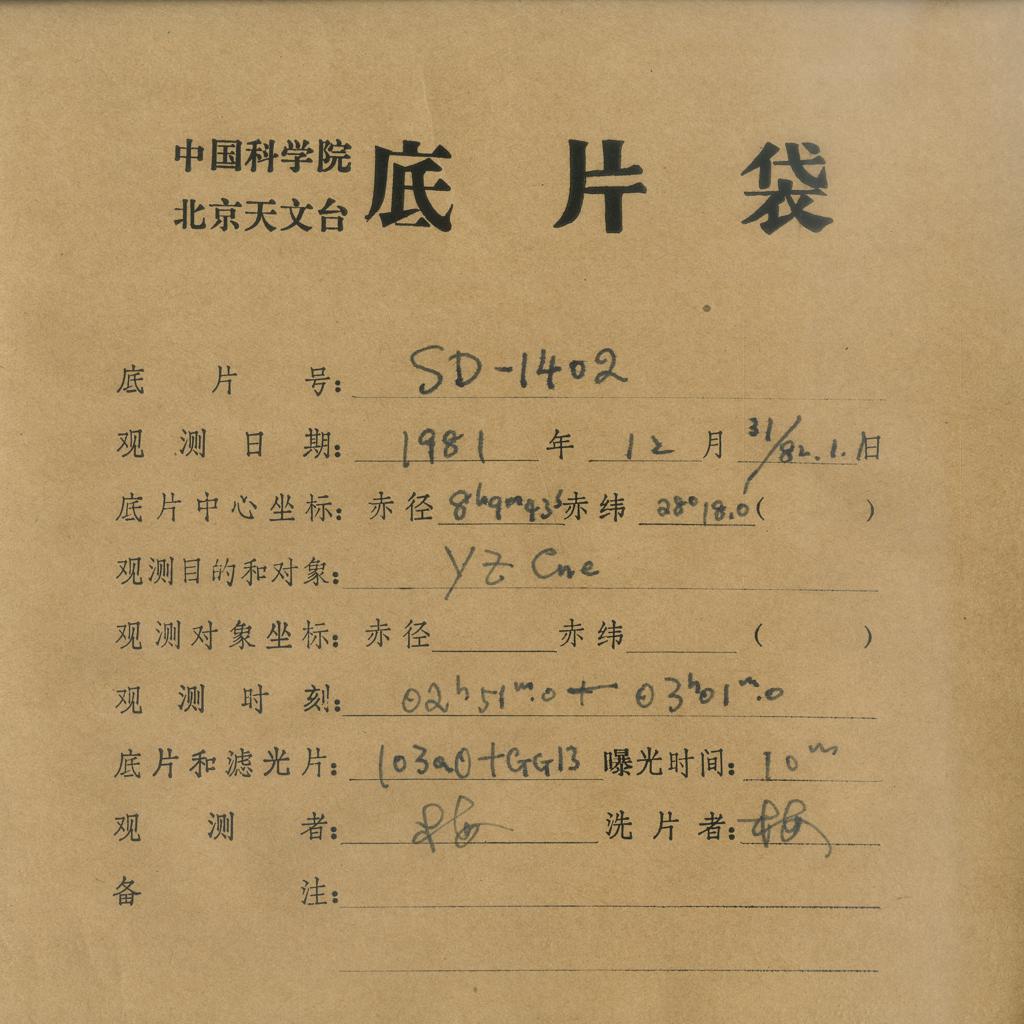 中国科学院
北京天文台
底片袋
底片号: SD-1402
观测日期: 1981 年 12 月 31/82.1.1日
底片中心坐标: 赤径 8h9m43s 赤纬 28°18.0 ( )
观测目的和对象: YZ Cnc
观测对象坐标: 赤径 赤纬 ( )
观测时刻: 02h51m.0 — 03h01m.0
底片和滤光片: 103aO+GG13 曝光时间: 10m
观测者: 梅 洗片者: 梅
备注: